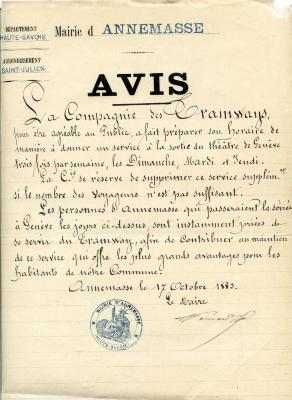 DÉPARTEMENT
HAUTE-SAVOIE
ARRONDISSEMENT
SAINT-JULIEN
Mairie d ANNEMASSE
AVIS
La Compagnie des Tramways,
pour être agréable au Public, a fait préparer son horaire de
manière à donner un service à la sortie du théâtre de Genève
trois fois par semaine, les Dimanche, Mardi et Jeudi.
La Cie se réserve de supprimer ce service supplém.re
si le nombre des voyageurs n'est pas suffisant.
Les personnes d'Annemasse qui passeraient la soirée
à Genève les jours ci-dessus, sont instamment priées de
se servir du Tramway, afin de contribuer au maintien
de ce service qui offre les plus grands avantages pour les
habitants de notre Commune.
Annemasse le 17 Octobre 1883.
Le Maire
MAIRIE D'ANNEMASSE
HTE SAVOIE